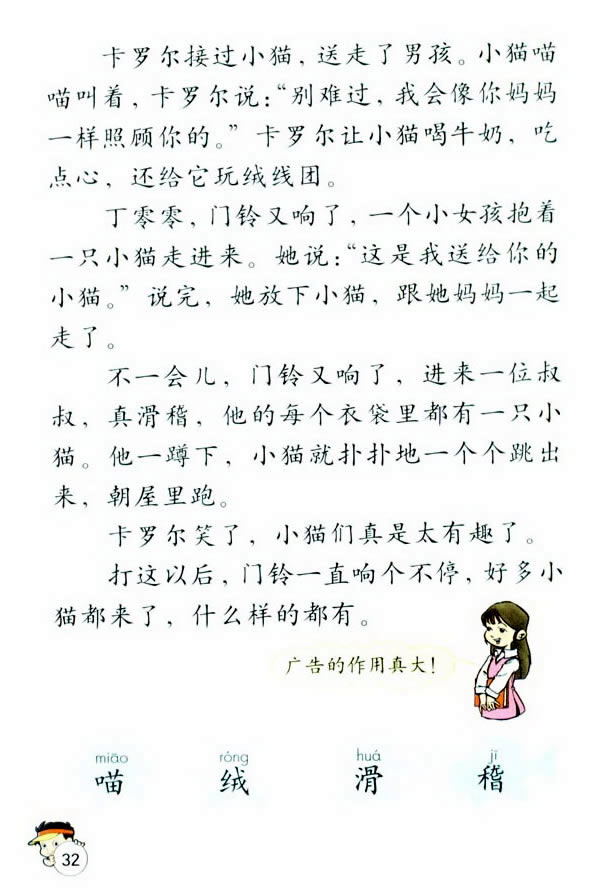 卡罗尔接过小猫，送走了男孩。小猫喵
喵叫着，卡罗尔说：“别难过，我会像你妈妈
一样照顾你的。”卡罗尔让小猫喝牛奶，吃
点心，还给它玩绒线团。
丁零零，门铃又响了，一个小女孩抱着
一只小猫走进来。她说：“这是我送给你的
小猫。”说完，她放下小猫，跟她妈妈一起
走了。
不一会儿，门铃又响了，进来一位叔
叔，真滑稽，他的每个衣袋里都有一只小
猫。他一蹲下，小猫就扑扑地一个个跳出
来，朝屋里跑。
卡罗尔笑了，小猫们真是太有趣了。
打这以后，门铃一直响个不停，好多小
猫都来了，什么样的都有。
广告的作用真大！
miāo róng huá jī
喵 绒 滑 稽
32